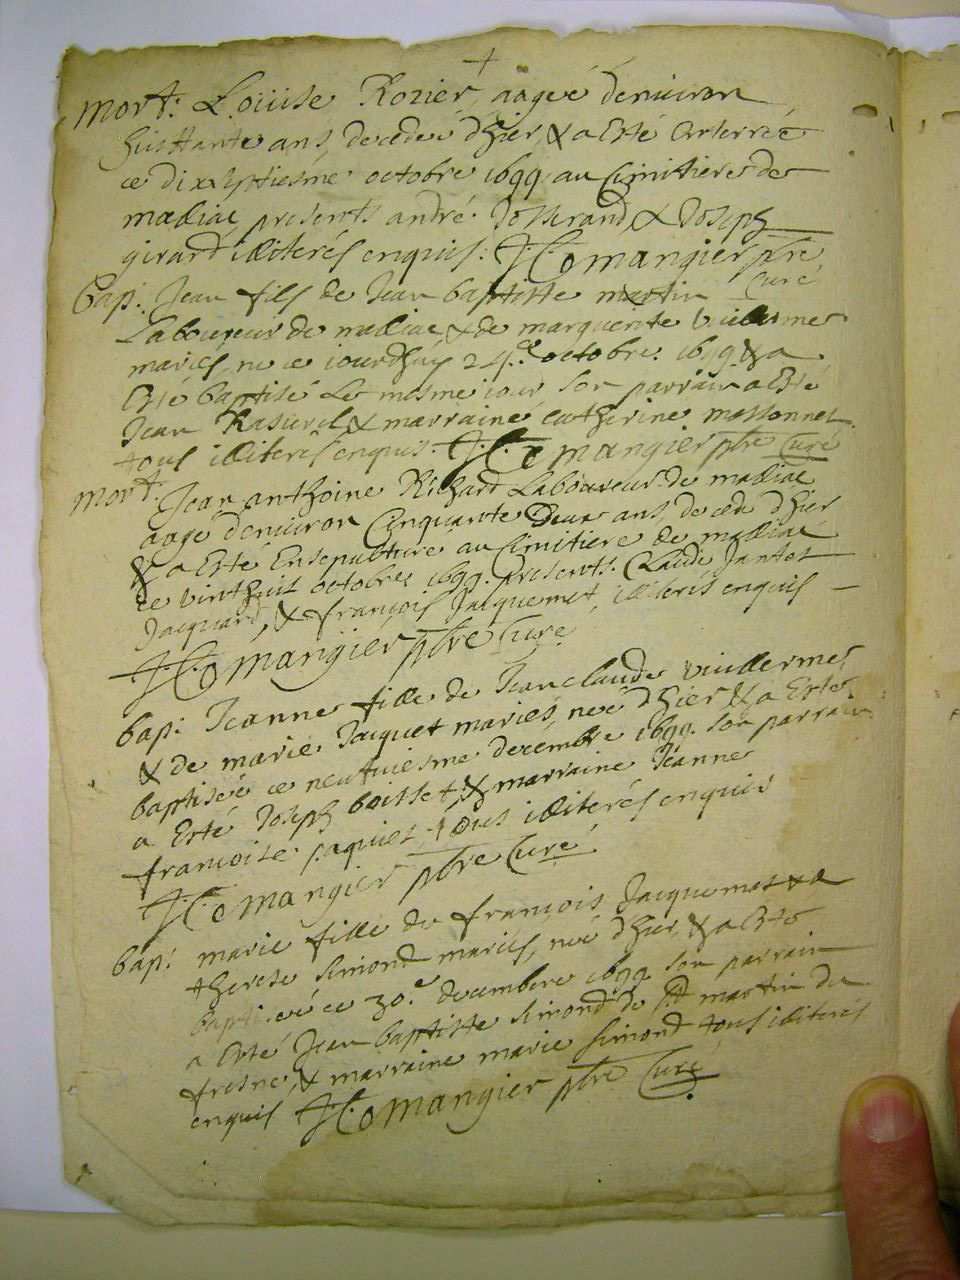 +
mort: Louise Rozier, aagee denuiron
huittante ans, decedeé d'hier, & a Esté Enterrée
ce dix septiesme octobre 1699 au Cimitiere de
madiac presents andré Josserand, & Joseph
girard illiterés enquis. Comangier pbre
Curé
bap: Jean fils de Jean baptiste martin
Laboureur de madiac & de marguerite Vuillermet
mariés, né ce iourdhuy 24e octobre 1699 & a
Esté baptisé Le mesme iour son parrain a Esté
Jean & marraine catherine massonnet
tous illiterés enquis. Comangier pbre Curé
mort. Jean anthoine Richard Laboureur de madiac
aagé denuiron Cinquante Deux ans decedé d'hier
& a Esté Ensepulturé au Cimitiere de madiac
ce vinthuit octobre 1699. presents. Claude Jantet
Jacquard, & françois Jacquemet, illiterés enquis
Comangier pbre Curé
bap: Jeanne fille de Jean claude vuillermet
& de marie Jacquet mariés, neé d'hier & a Esté
baptiseé ce neufuiesme decembre 1699. son parrain
a Esté Joseph boisset & marraine Jeanne
francoise paquiet, tous illiterés enquis
Comangier pbre Curé
bap: marie fille de françois Jacquemet & de
therese simond mariés, neé d'hier, & a Esté
baptiseé ce 30.e decembre 1699 son parrain
a Esté Jean baptiste simond de st martin du
fresne, & marraine marie simond tous illiterés
enquis Comangier pbre Curé